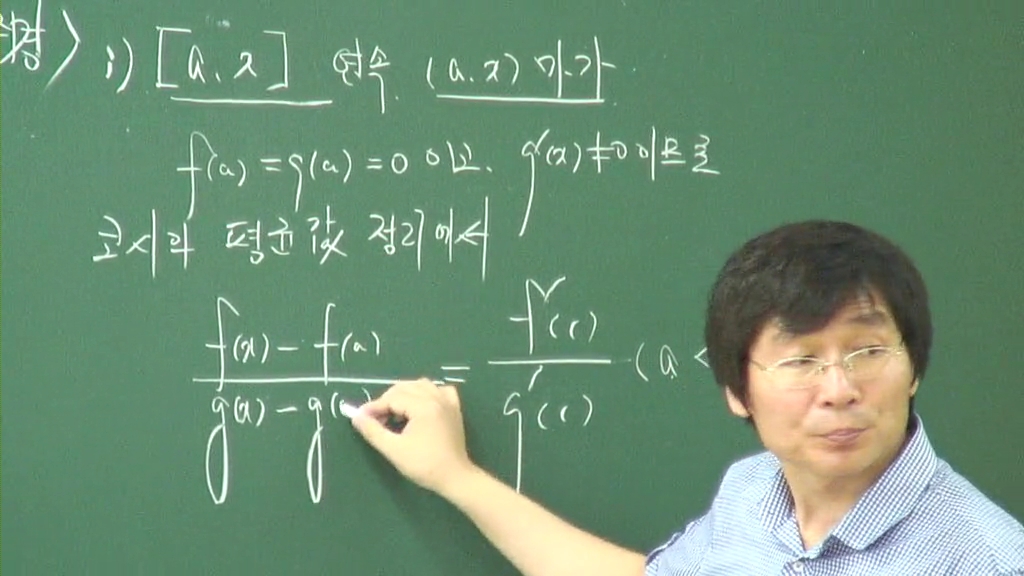 i) [a, x] 연속 (a, x) 미가
f(a) = g(a) = 0 이고, g'(x) ≠ 0 이므로
코시의 평균값 정리에서
f(x) - f(a) / g(x) - g( = f'(c) / g'(c) (a <